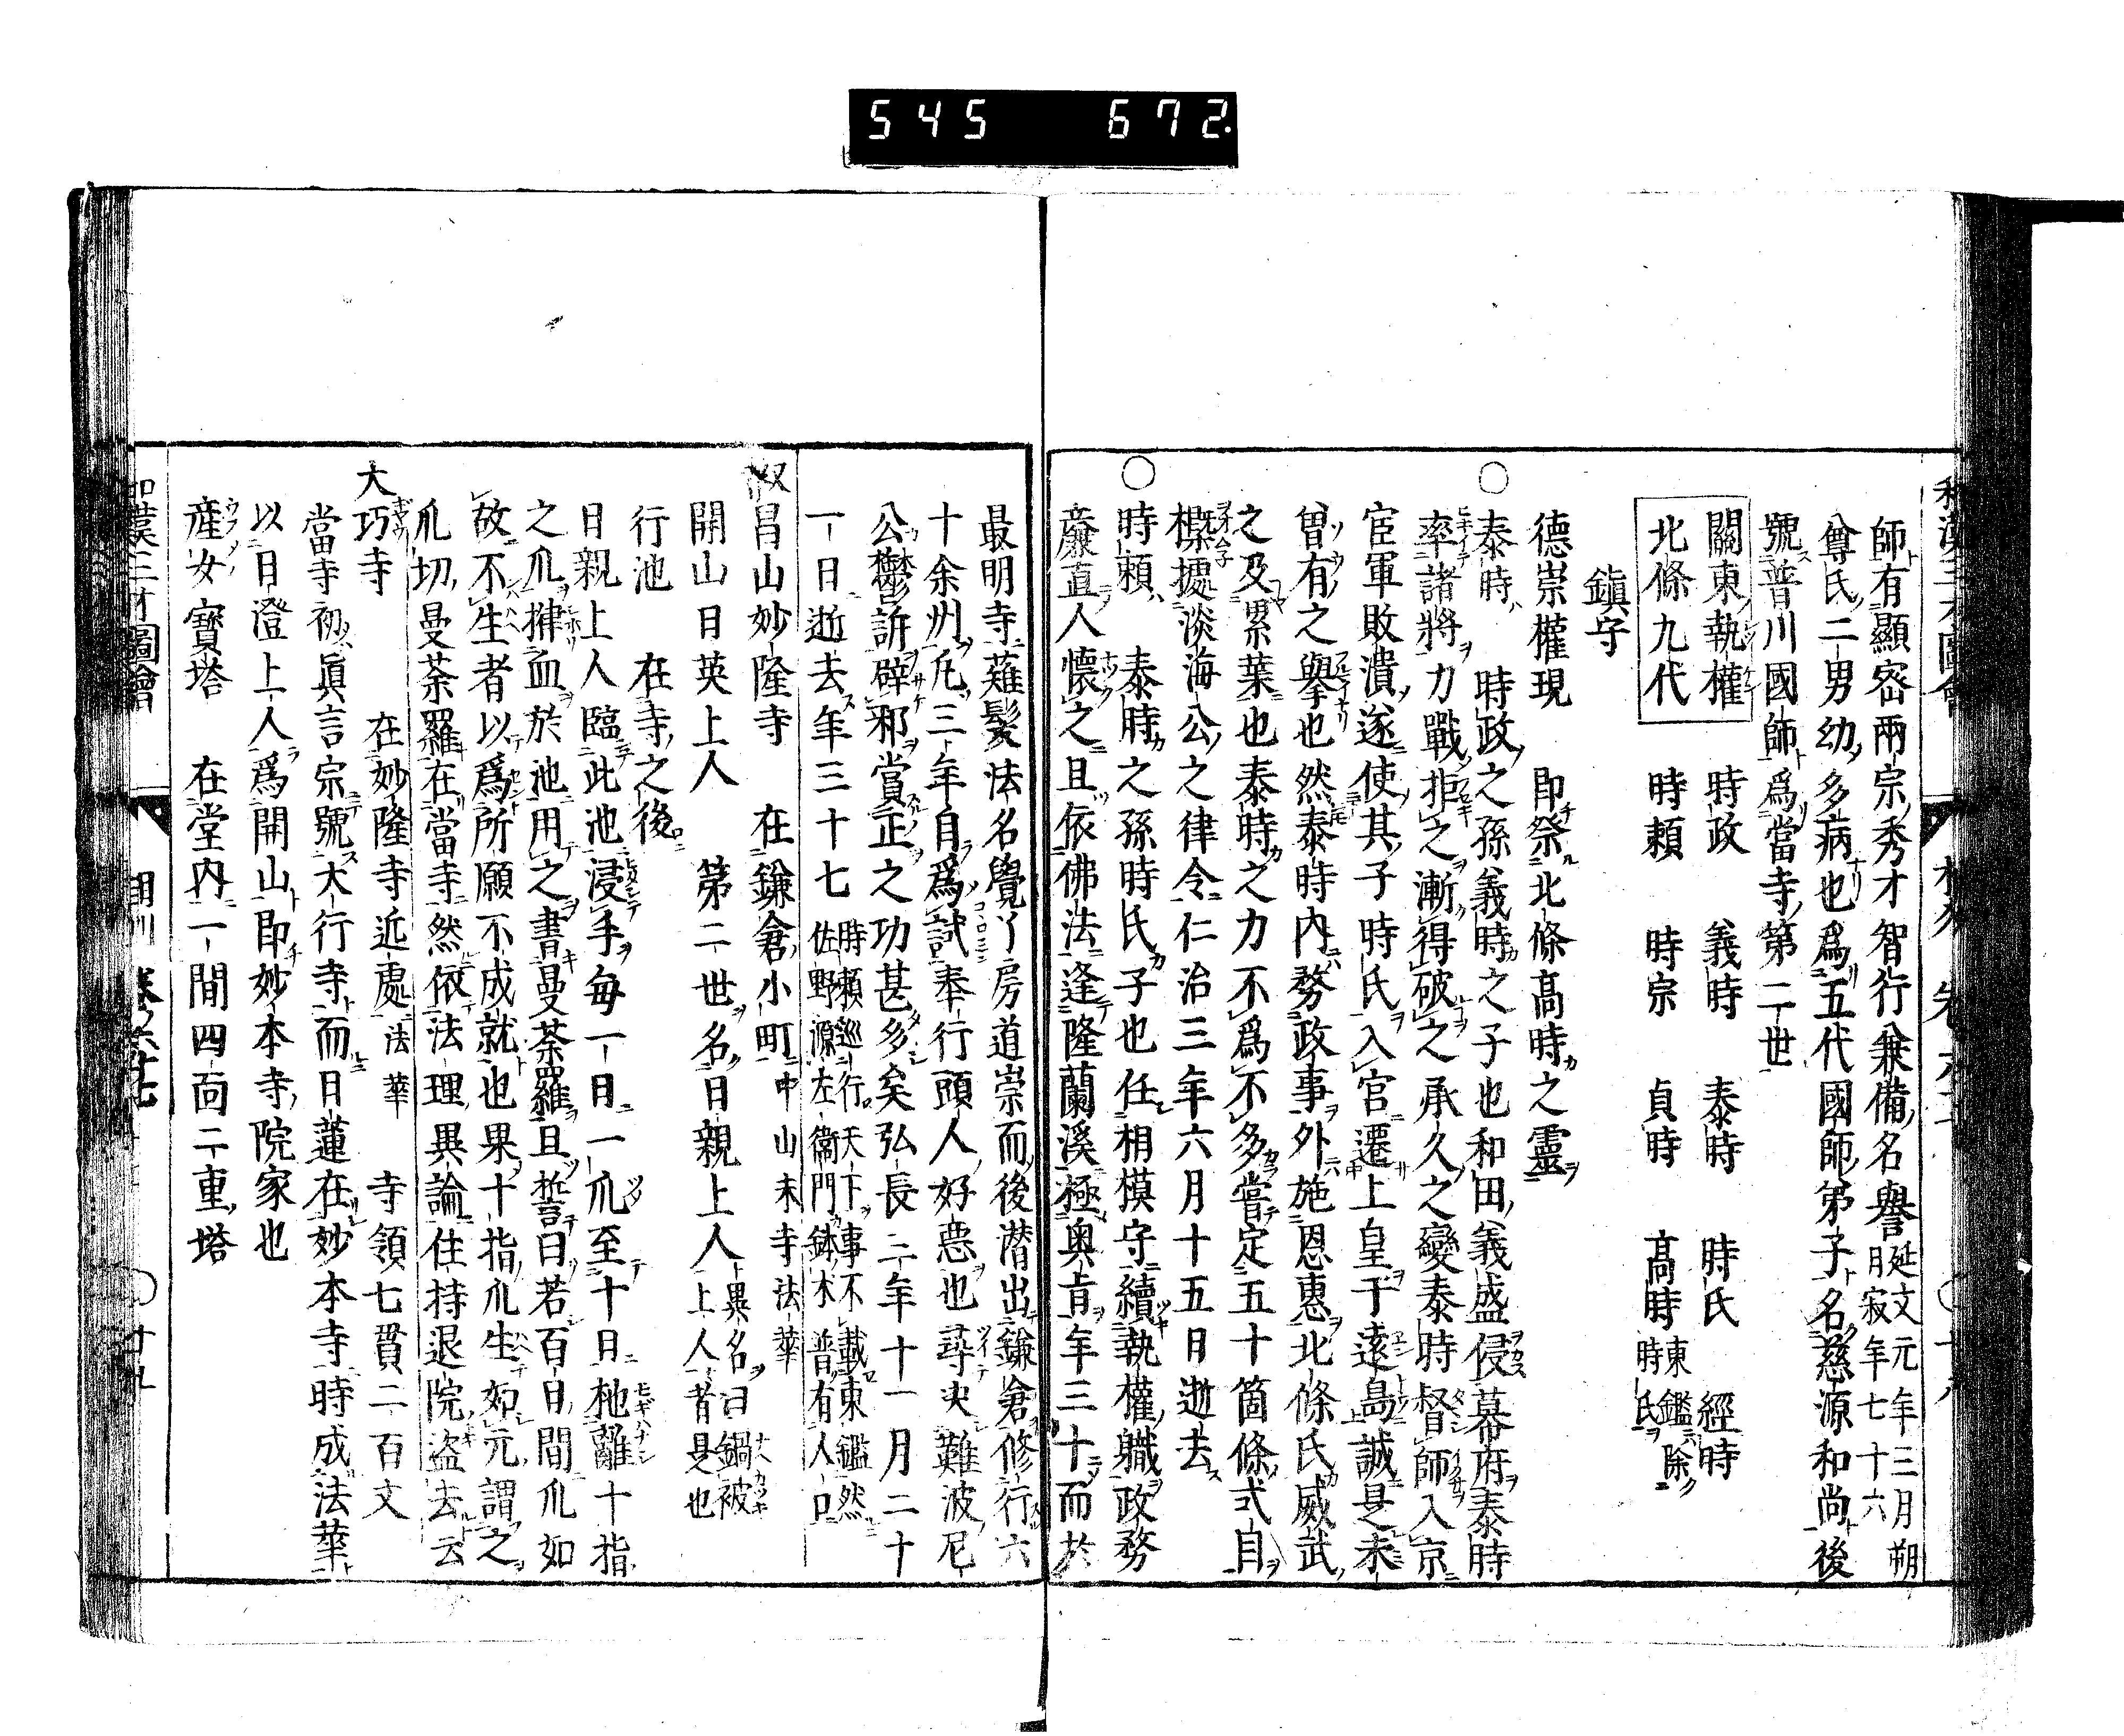 545 672
師有顯宻兩宗秀才智行兼備名譽延文元年三月朔
日寂年七十六
尊氏二男幼多病也爲五代國師弟子名慈源和尚後
號普川國師爲當寺第二世
關東執權 時政 義時 泰時 時氏 經時
北條九代 時頼 時宗 貞時 高時東鑑除
時氏
鎮守
德崇權現 即祭北條高時之靈
○泰時 時政之孫義時之子也和田義盛侵幕府泰時
率諸將力戰拒之漸得破之承久之變泰時督師入京
官軍敗潰遂使其子時氏入宮遷上皇于遠島誠是未
曽有之擧也然泰時内務政事外施恩惠北條氏威武
之及累葉也泰時之力不爲不多嘗定五十箇條式自
槩據淡海公之律令仁治三年六月十五日逝去
○時頼 泰時之孫時氏子也任相模守續執權職政務
廉直人懷之且依佛法逢隆蘭溪極奥旨年三十而於
最明寺薙髪法名覺了房道崇而後潜出鎌倉修行六
十余州凡三年自爲試奉行頭人好惡也尋夬難波尼
公欝訴辟邪賞正之功甚多矣弘長二年十一月二十
一日逝去年三十七時頼巡行天下事不載東鑑然
佐野源左衞門鉢木普有人口
昌山妙隆寺 在鎌倉小町中山末寺法華
開山日英上人 第二世名日親上人異名曰鍋被
上人者是也
行池 在寺之後
日親上人臨此池浸手毎一日一爪至十日柂離十指
之爪揵血於池用之書曼荼羅且誓曰若百日間爪如
故不生者以爲所願不成就也果十指爪生如元謂之
爪切曼荼羅在當寺然依法理異論住持退院盗去云
大巧寺 在妙隆寺近處法華 寺領七貫二百文
當寺初眞言宗號大行寺而日蓮在妙本寺時成法華
以日澄上人爲開山即妙本寺院家也
産女寶塔 在堂内一間四面二重塔